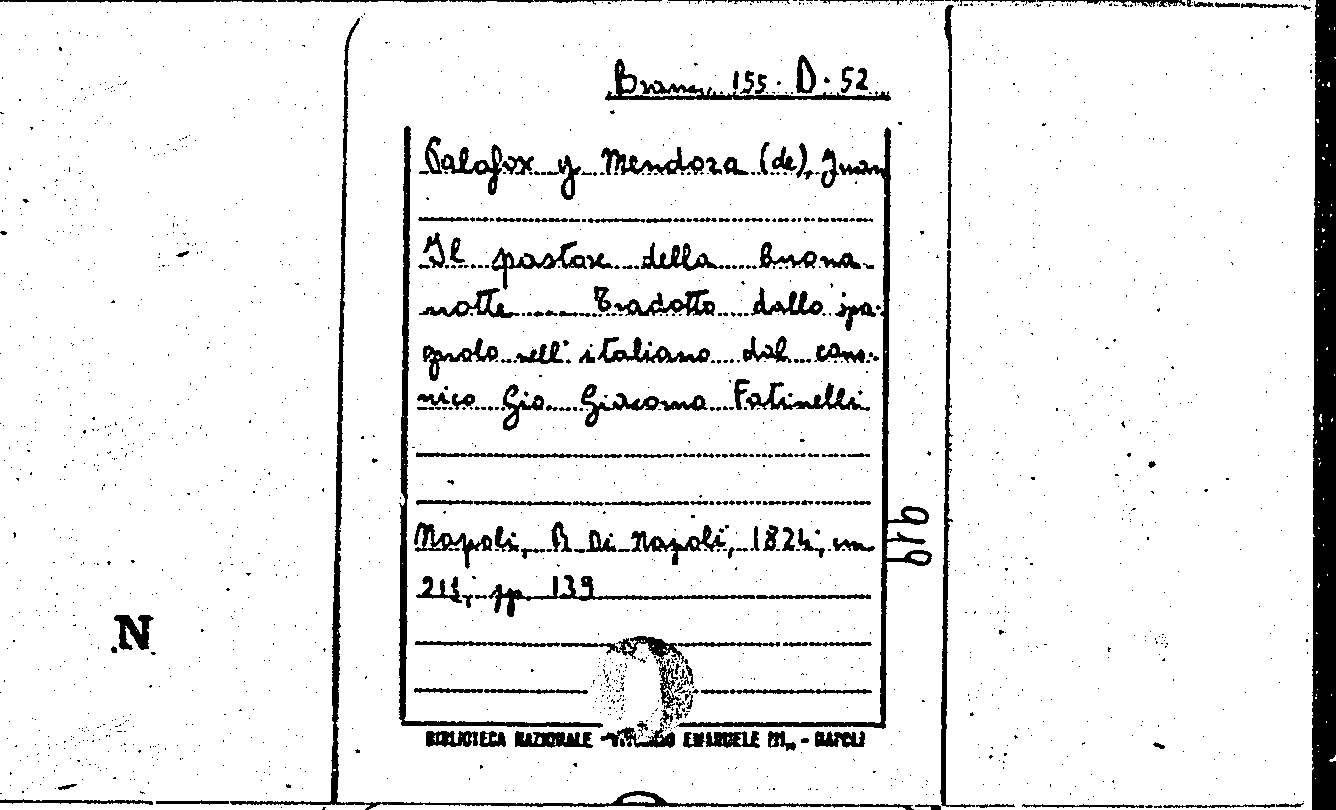 Branc. 155. D. 52
Palafox y Mendoza (de), Juan
Il pastore della buona
notte .... Tradotto dallo spa-
gnolo nell' italiano dal cano-
nico Gio. Giacomo Fatinelli
Napoli, R. Di Napoli, 1824; cm
21½; pp. 139
brb
N
BIBLIOTECA NAZIONALE - VITTORIO EMANUELE III„ - NAPOLI